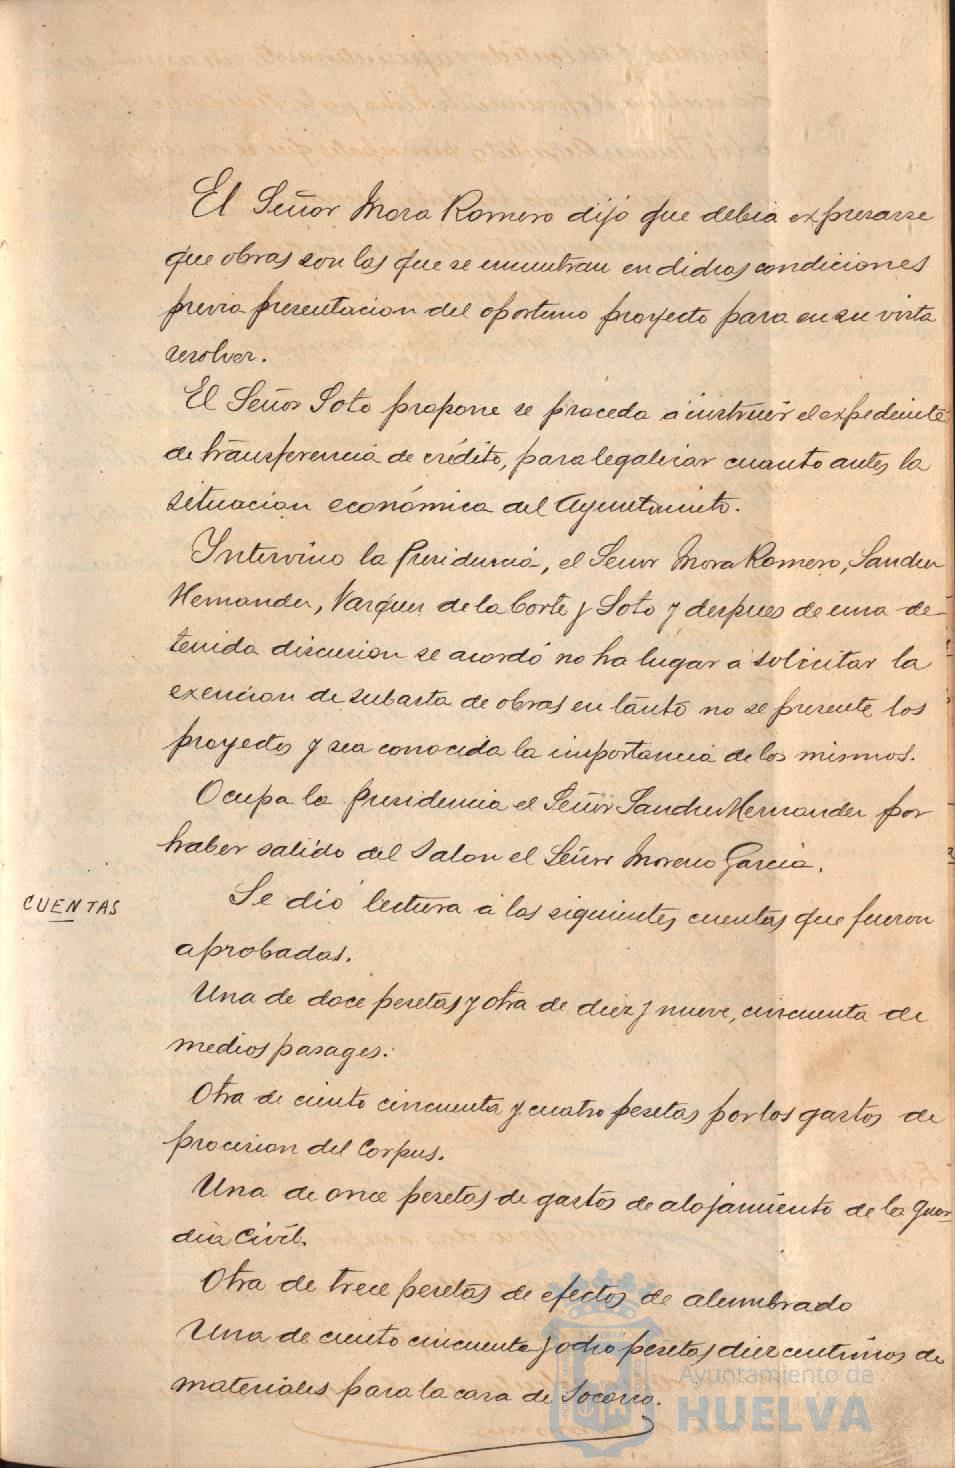 El Señor Mora Romero dijo que debia expresarse
que obras son las que se encuentran en dichas condiciones
previa presentacion del oportuno proyecto para en su vista
resolver.
El Señor Soto propone se proceda á instruir el expediente
de transferencia de crédito, para legalizar cuanto antes la
situacion económica del Ayuntamiento.
Intervino la Presidencia, el Señor Mora Romero, Sanchez
Hernandez, Vazquez de la Corte y Soto y despues de una de-
tenida discusion se acordó no ha lugar á solicitar la
exencion de subasta de obras en tanto no se presente los
proyectos y sea conocida la importancia de los mismos.
Ocupa la Presidencia el Señor Sanchez Hernandez por
haber salido del Salon el Señor Moreno Garcia.
CUENTAS
Se dió lectura á las siguientes cuentas que fueron
aprobadas.
Una de doce pesetas y otra de diez y nueve, cincuenta de
medios pasages.
Otra de ciento cincuenta y cuatro pesetas por los gastos de
procesion del Corpus.
Una de once pesetas de gastos de alojamiento de la Guar-
dia Civil.
Otra de trece pesetas de efectos de alumbrado
Una de ciento cincuenta y ocho pesetas diez centimos de
materiales para la casa de Socorro.
Ayuntamiento de
HUELVA